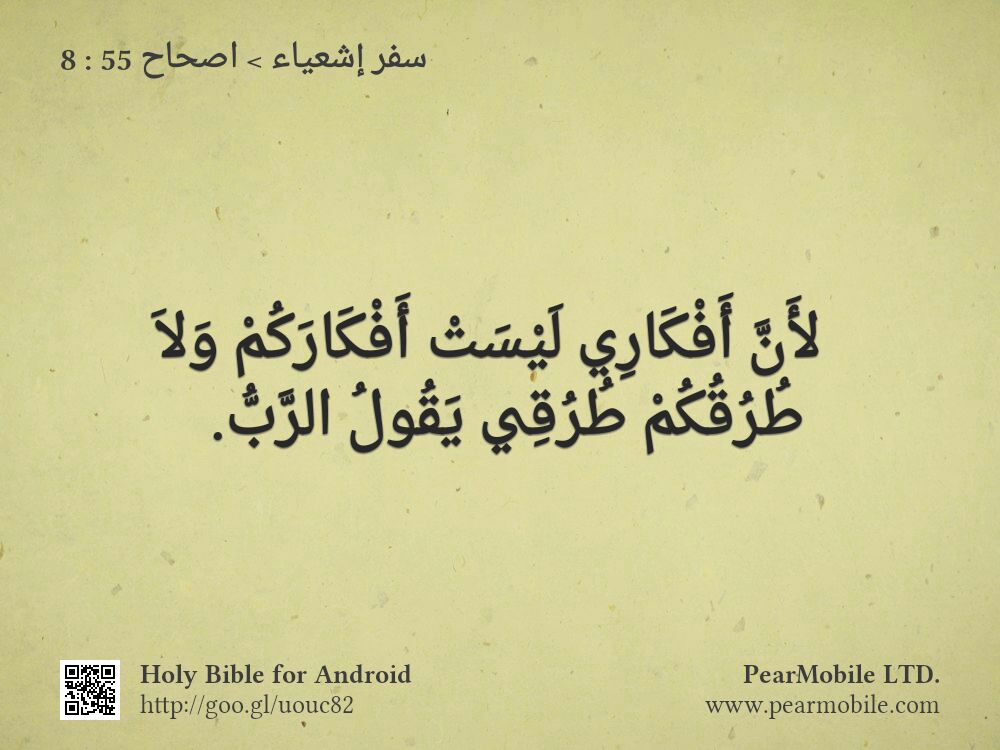 سفر إشعياء > اصحاح 55 : 8
لأَنَّ أَفْكَارِي لَيْسَتْ أَفْكَارَكُمْ وَلاَ
طُرُقُكُمْ طُرُقِي يَقُولُ الرَّبُّ.
Holy Bible for Android
http://goo.gl/uouc82
PearMobile LTD.
www.pearmobile.com